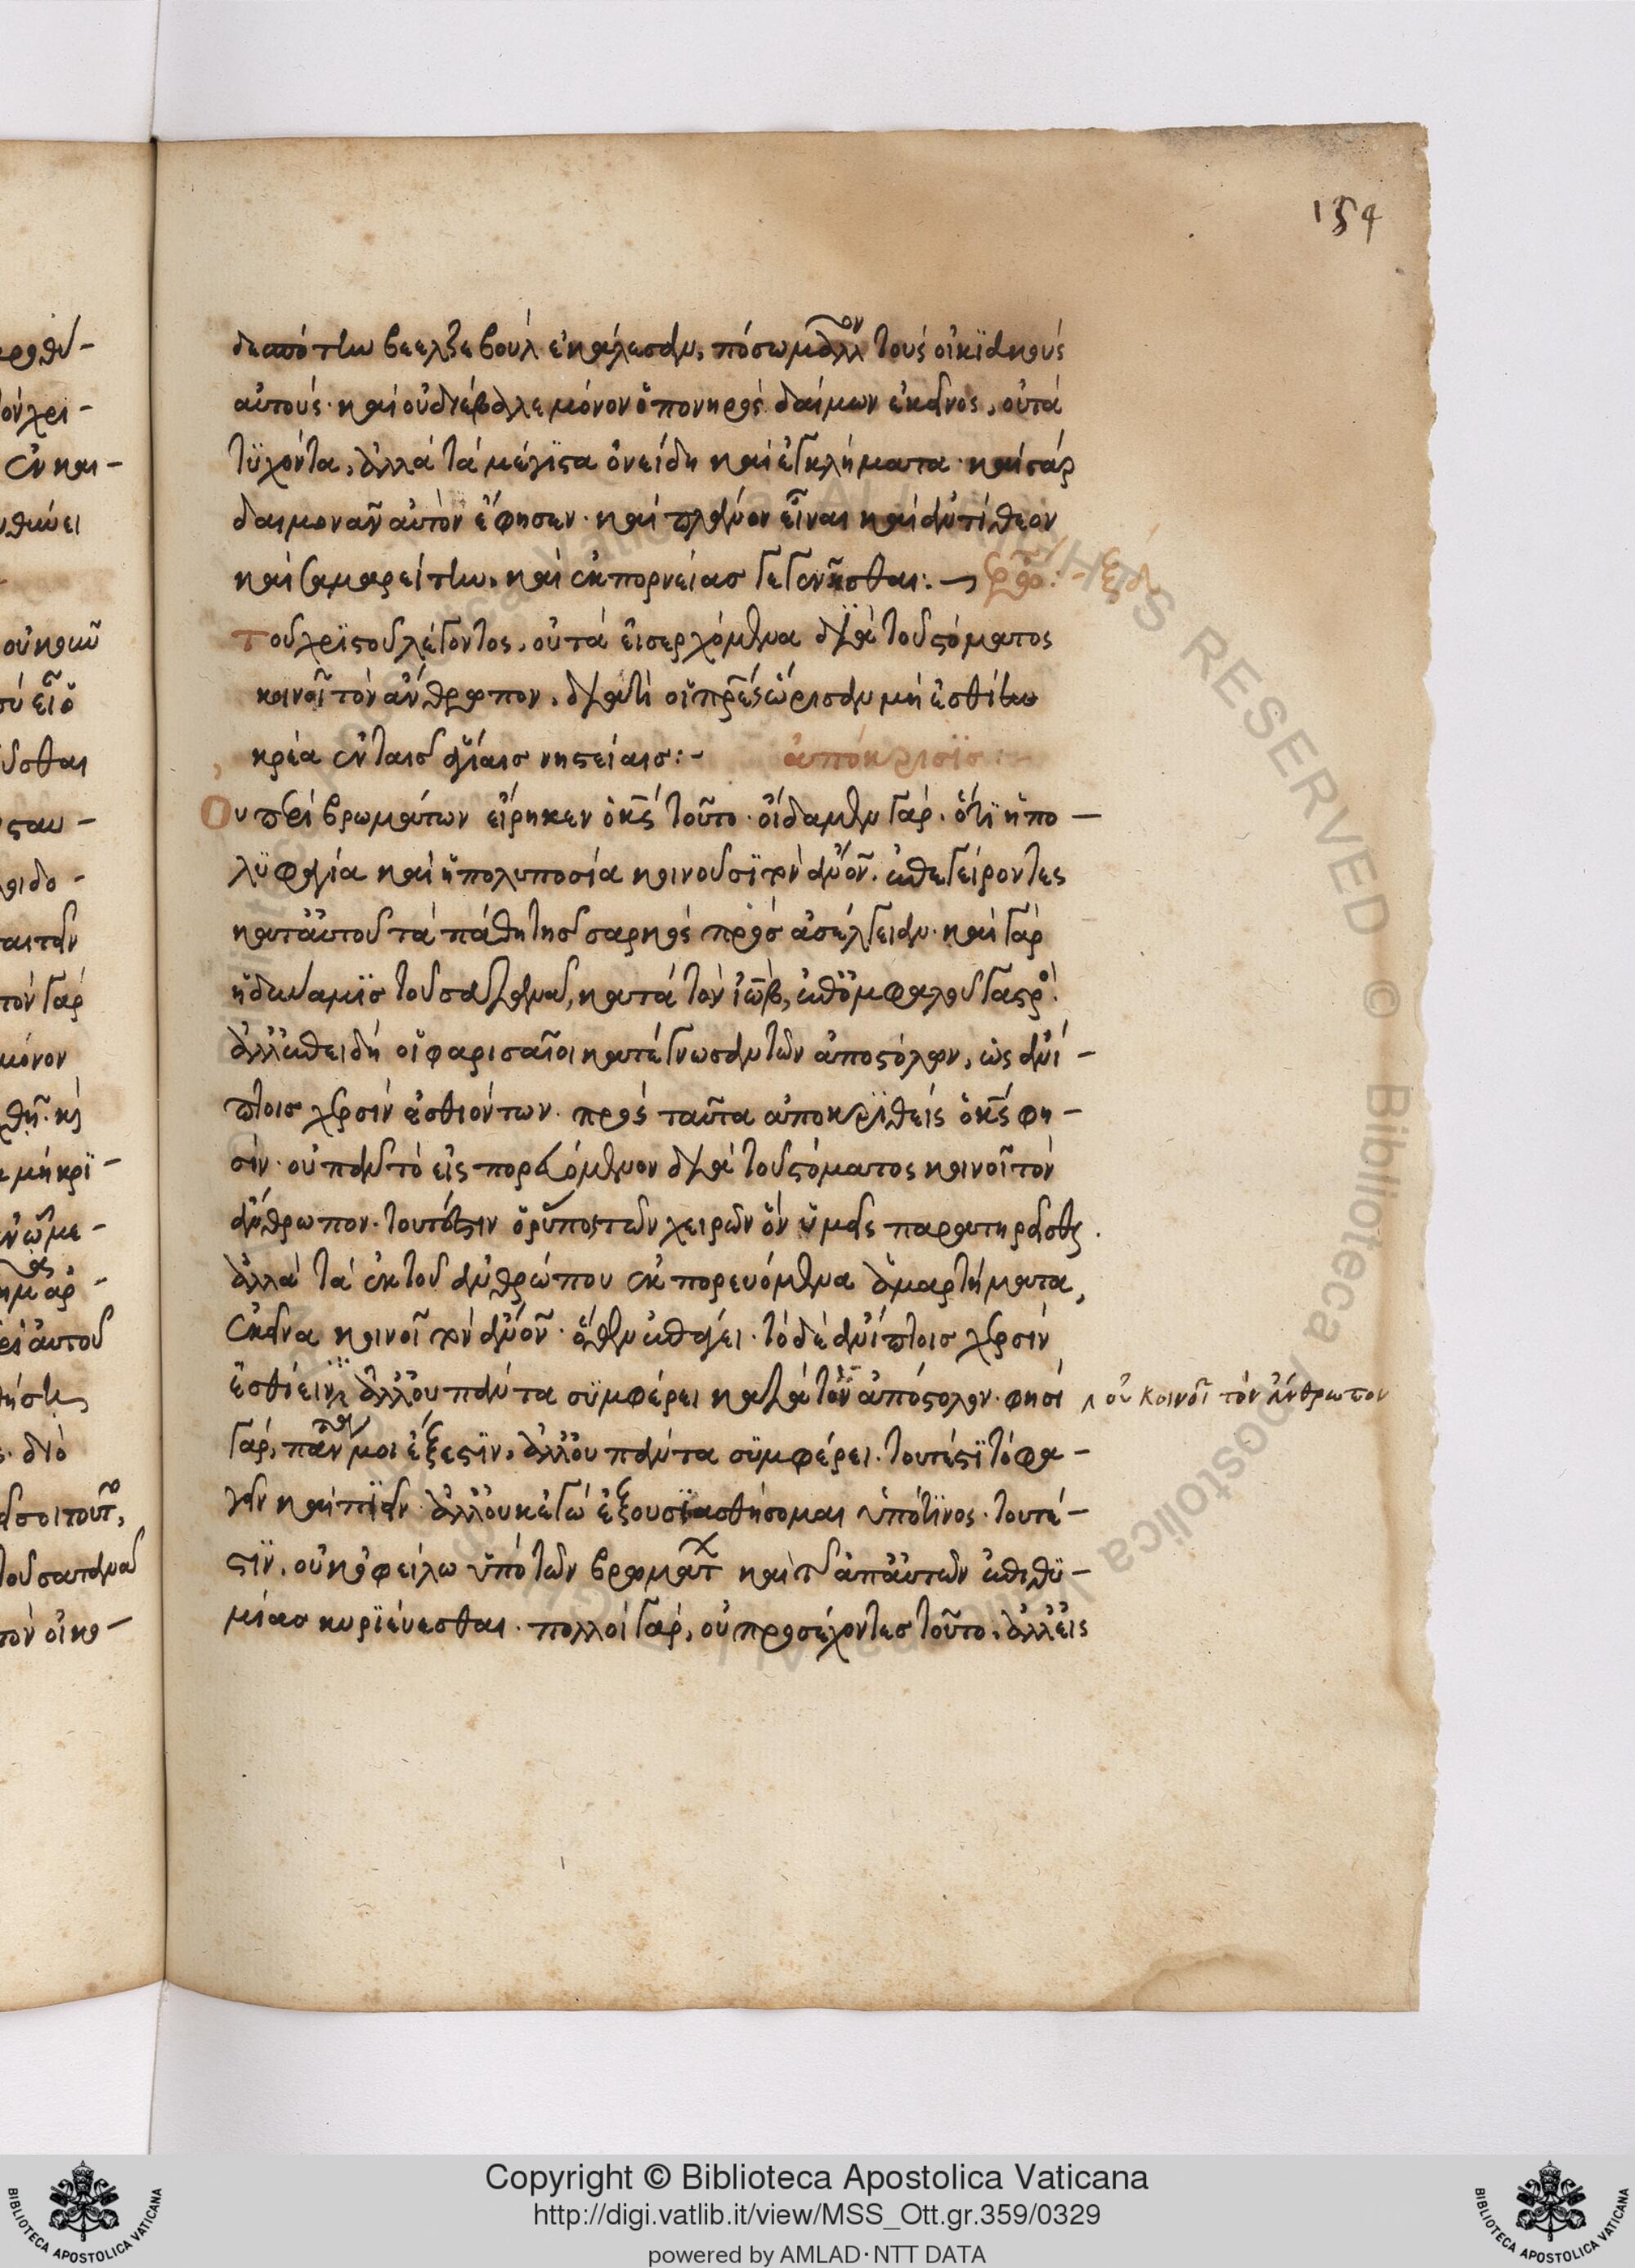 154
δεσπότην βεελζεβουλ ἐκάλεσαν, πόσω μᾶλλον τοὺς οἰκιακοὺς
αὐτοὺς· καὶ οὐ διέβαλλε μόνον ὁ πονηρὸς δαίμων ἐκεῖνος, οὐ τὰ
τϋχόντα, ἀλλὰ τὰ μέγϊστα ὀνείδη καὶ ἐγκλήματα· καὶ γὰρ
δαιμονᾶν αὐτὸν ἔφησεν· καὶ πλάνον εἶναι καὶ ἀντίθεον
καὶ σαμαρείτην, καὶ ἐκ πορνείας γεγενῆσθαι:
Τοῦ χρϊστοῦ λέγοντος, οὐ τὰ εἰσερχόμενα διὰ τοῦ στόματος
κοινοῖ τὸν ἄνθρωπον, διατὶ οἱ πρες ὥρισαν μὴ ἐσθίειν
κρέα ἐν ταῖς ἁγίαις νηστείαις:- ἀπόκρισϊς:-
Οὐ περὶ βρωμάτων εἴρηκεν ὁ κς τοῦτο· οἴδαμεν γάρ· ὅτϊ ἡ πο-
λϋφαγία καὶ ἡ πολυποσία κοινοῦσϊ τὸν ἀνον· ἐπεγείροντες
κατ' αὐτοῦ τὰ πάθη τῆς σαρκὸς πρὸς ἀσέλγειαν· καὶ γὰρ
ἡ δύναμϊς τοῦ σατανᾶ, κατὰ τὸν ἰὼβ, ἐπ' ὀμφαλοῦ γαστρὸ·
ἀλλ' ἐπειδὴ οἱ φαρισαῖοι κατέγνωσαν τῶν ἀποστόλων, ὡς ἀνί-
πτοις χερσὶν ἐσθιόντων· πρὸς ταῦτα ἀποκρϊθεὶς ὁ κς φη-
σίν· οὐ πᾶν τὸ εἰσπορευόμενον διὰ τοῦ στόματος κοινοῖ τὸν
ἄνθρωπον· τουτέστιν ὁ ῥύπος τῶν χειρῶν ὃν ὑμεῖς παρατηρεῖσθε·
ἀλλὰ τὰ ἐκ τοῦ ἀνθρώπου ἐκπορευόμενα ἁμαρτήματα,
ἐκεῖνα κοινοῖ τὸν ἀνον· ὅθεν ἐπάγει· τὸ δὲ ἀνίπτοις χερσὶν
ἐσθίειν ἀλλ' οὐ πάντα συμφέρει κατὰ τὸν ἀπόστολον· φησὶ
οὐ κοινοῖ τὸν ἄνθρωπον
γάρ, πάντα μοι ἔξεστϊν, ἀλλ' οὐ πάντα σϋμφέρει· τουτέστϊ τὸ φα-
γεῖν καὶ πϊεῖν· ἀλλ' οὐκ ἐγὼ ἐξουσϊασθήσομαι ὑπό τϊνος· τουτέ-
στϊν, οὐκ ὀφείλω ὑπὸ τῶν βρωμάτ καὶ τ ἀπ' αὐτῶν ἐπιθϋ-
μίας κυρϊεύεσθαι· πολλοὶ γάρ, οὐ προσέχοντες τοῦτο, ἀλλ' εἰς
Copyright © Biblioteca Apostolica Vaticana
http://digi.vatlib.it/view/MSS_Ott.gr.359/0329
powered by AMLAD·NTT DATA
BIBLIOTECA APOSTOLICA VATICANA
BIBLIOTECA APOSTOLICA VATICANA